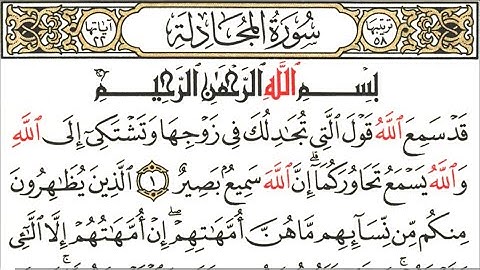 ترتيبها ٥٨ سُورَةُ المُجَادلَة آياتها ٢٢
بِسْمِ ٱللَّهِ ٱلرَّحْمَٰنِ ٱلرَّحِيمِ
قَدْ سَمِعَ ٱللَّهُ قَوْلَ ٱلَّتِى تُجَٰدِلُكَ فِى زَوْجِهَا وَتَشْتَكِىٓ إِلَى ٱللَّهِ
وَٱللَّهُ يَسْمَعُ تَحَاوُرَكُمَآ ۚ إِنَّ ٱللَّهَ سَمِيعٌۢ بَصِيرٌ ١ ٱلَّذِينَ يُظَٰهِرُونَ
مِنكُم مِّن نِّسَآئِهِم مَّا هُنَّ أُمَّهَٰتِهِمْ ۖ إِنْ أُمَّهَٰتُهُمْ إِلَّا ٱلَّٰٓـِٔى